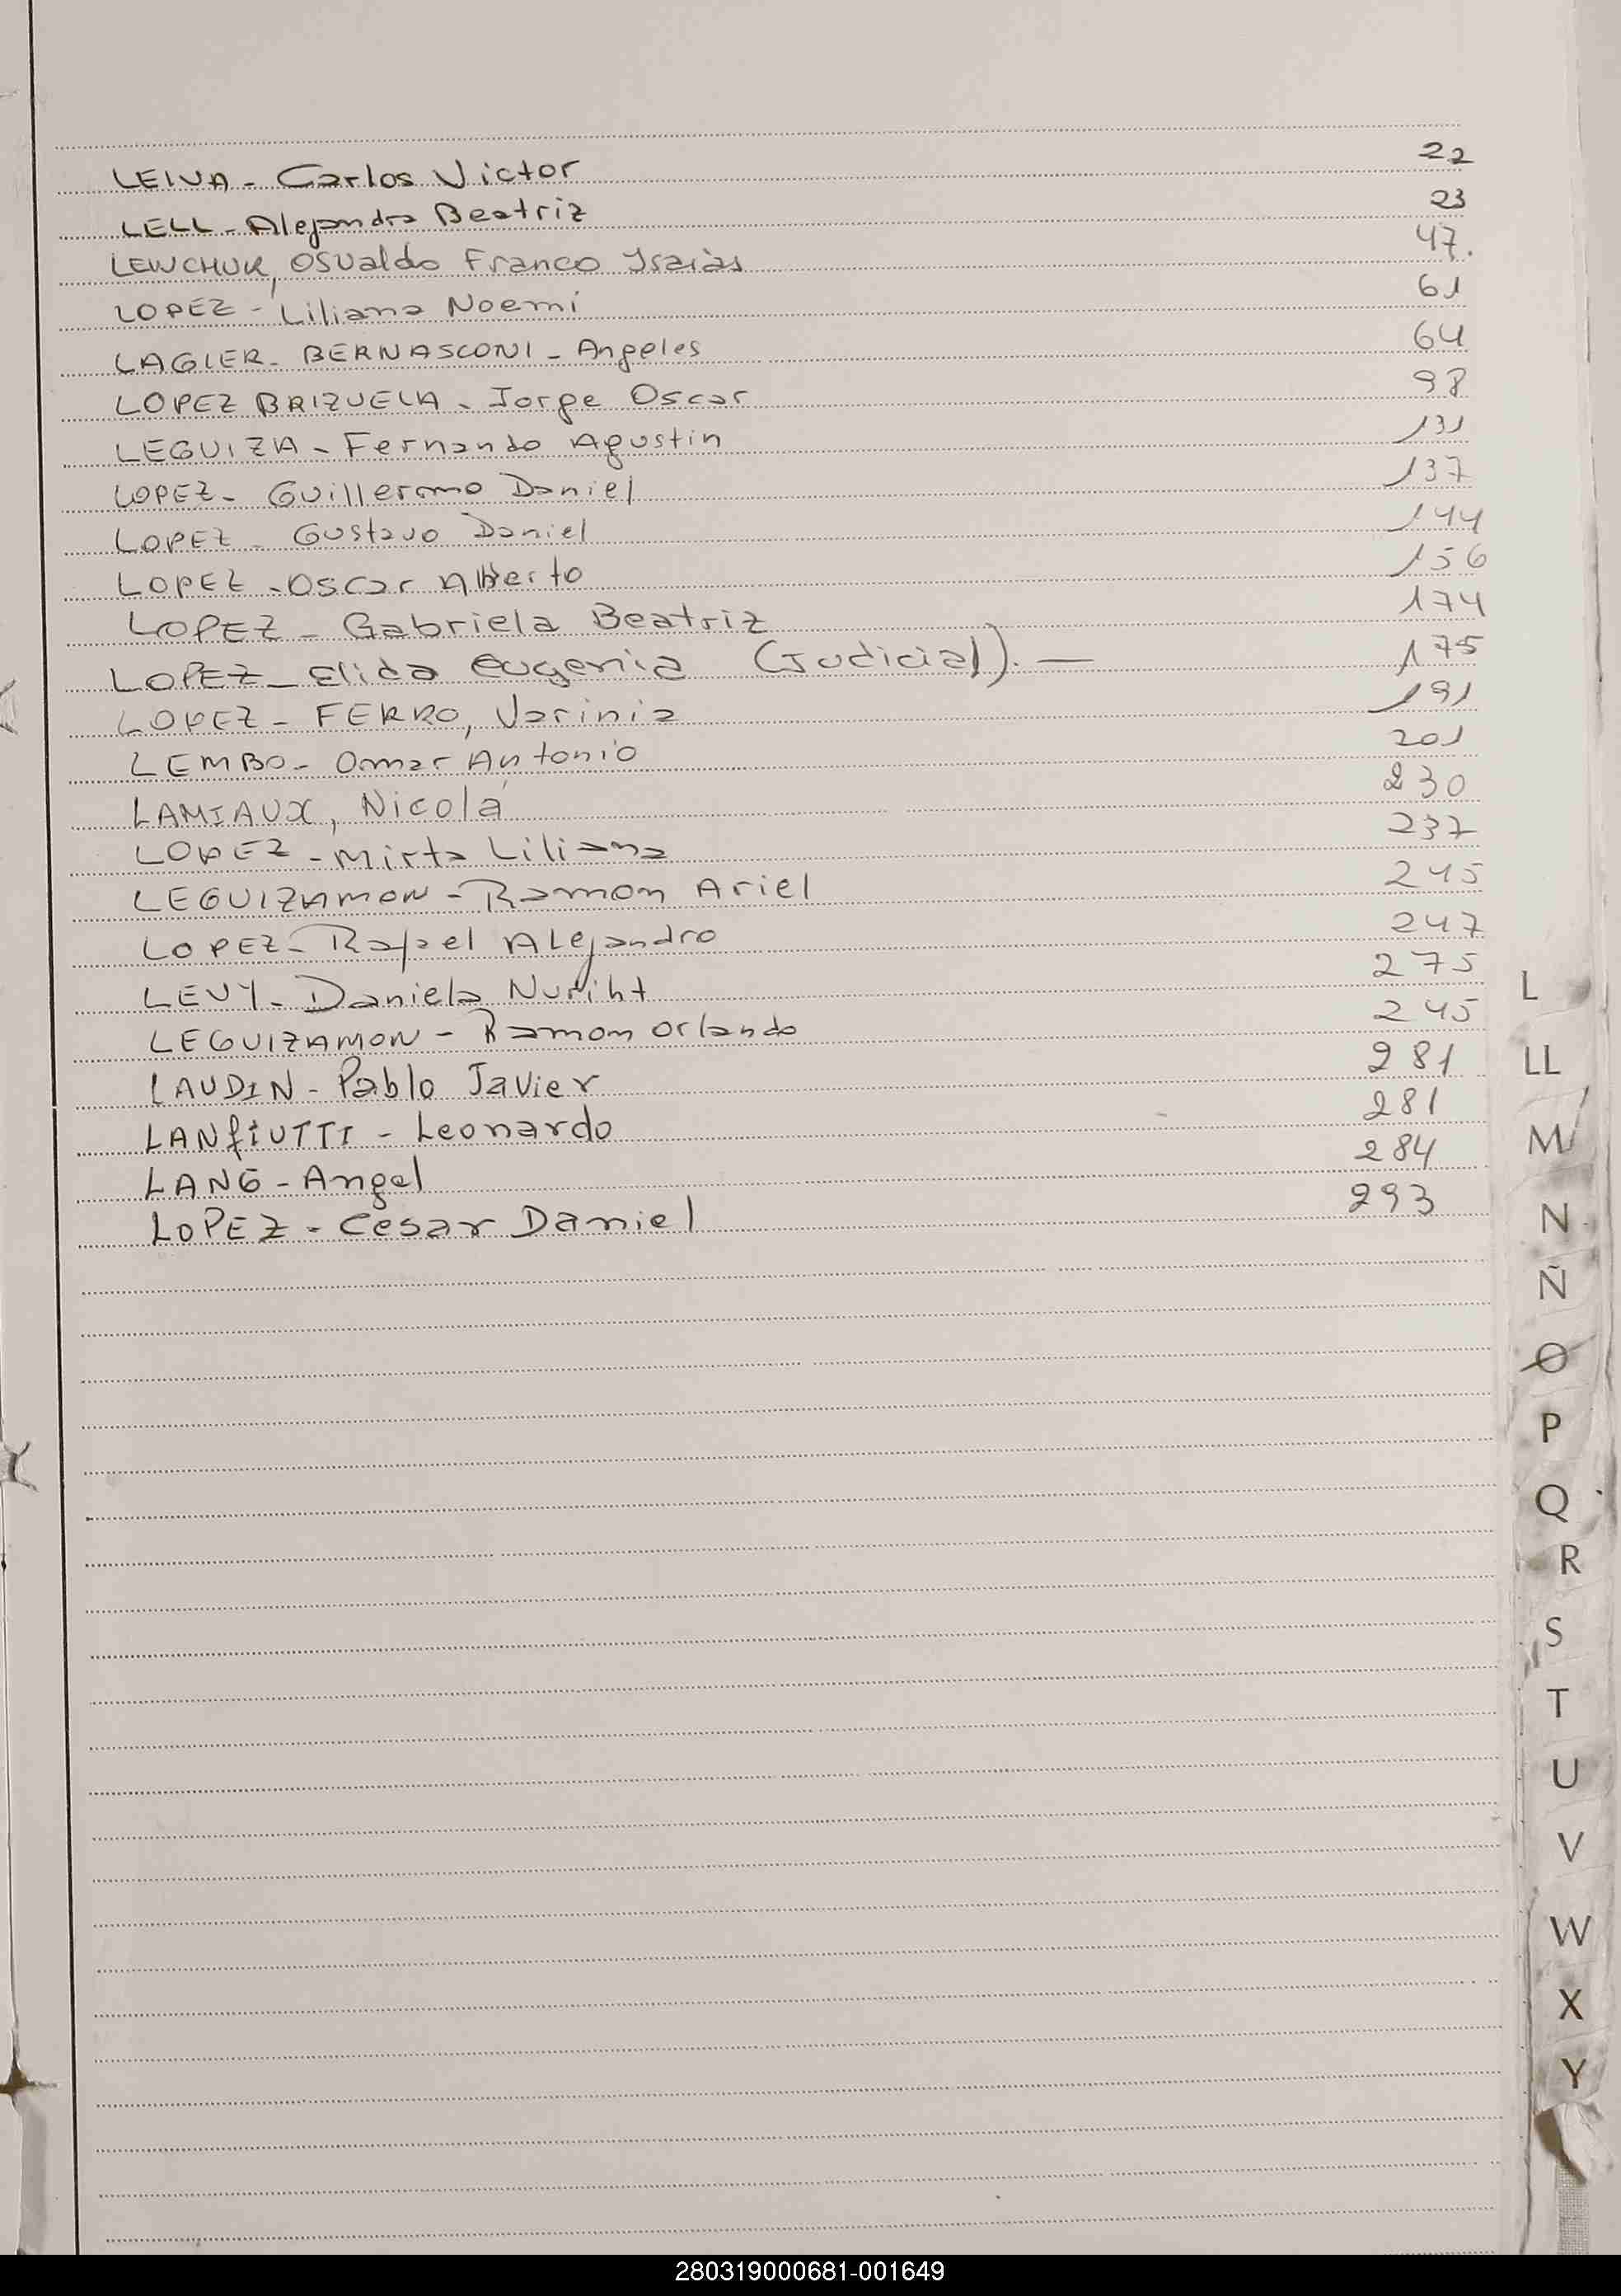 LEIVA - Carlos Victor 22
LELL - Alejandra Beatriz 23
LEWCHUK, Osvaldo Franco Isaias 47.
LOPEZ - Liliana Noemí 61
LAGIER - BERNASCONI - Angeles 64
LOPEZ BRIZUELA - Jorge Oscar 98
LEGUIZA - Fernando Agustin 131
LOPEZ - Guillermo Daniel 137
LOPEZ - Gustavo Daniel 144
LOPEZ - Oscar Alberto 156
LOPEZ - Gabriela Beatriz 174
LOPEZ - Elida Eugenia (Judicial). — 175
LOPEZ - FERRO, Varinia 191
LEMBO - Omar Antonio 201
LAMIAUX, Nicolá 230
LOPEZ - Mirta Liliana 237
LEGUIZAMON - Ramon Ariel 245
LOPEZ - Rafael Alejandro 247
LEVY - Daniela Nuriht 275
LEGUIZAMON - Ramon Orlando 245
LAUDIN - Pablo Javier 281
LANfiUTTI - Leonardo 281
LANG - Angel 284
LOPEZ - Cesar Daniel 293
L
LL
M
N
Ñ
O
P
Q
R
S
T
U
V
W
X
Y
280319000681-001649